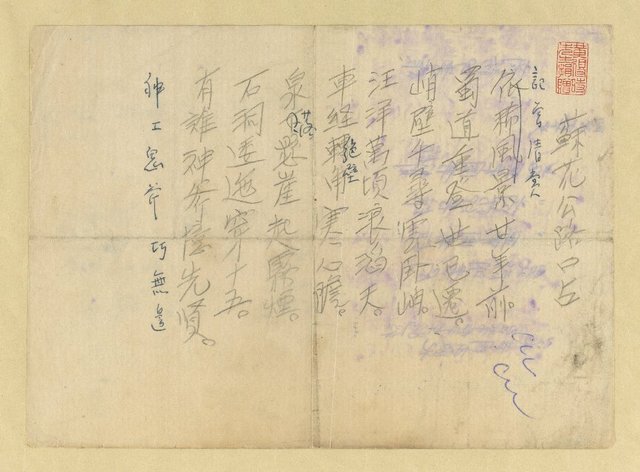 蘇花公路口占
記曾清賞
依稀風景廿年前。
蜀道重登世已遷。
峭壁千尋雲臥岫。
汪洋萬頃浪滔天。
車經轉角寒心膽。
絕壁
泉落懸崖起霧煙。
石洞逶迤穿十五。
有誰神斧陰先賢。
神工鬼斧巧無邊